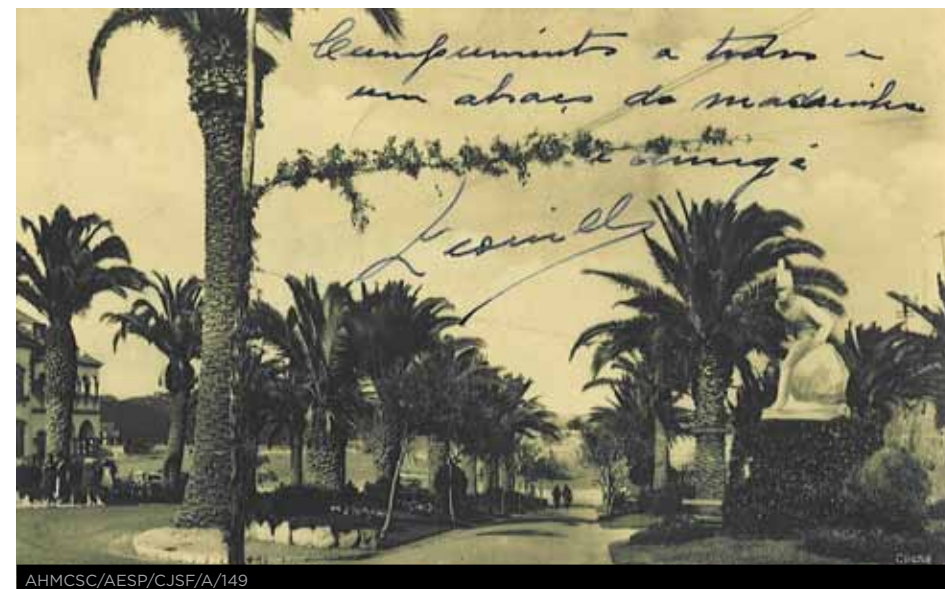 Cumprimentos a todos e
um abraço da madrinha
e amiga
AHMCSC/AESP/CJSF/A/149